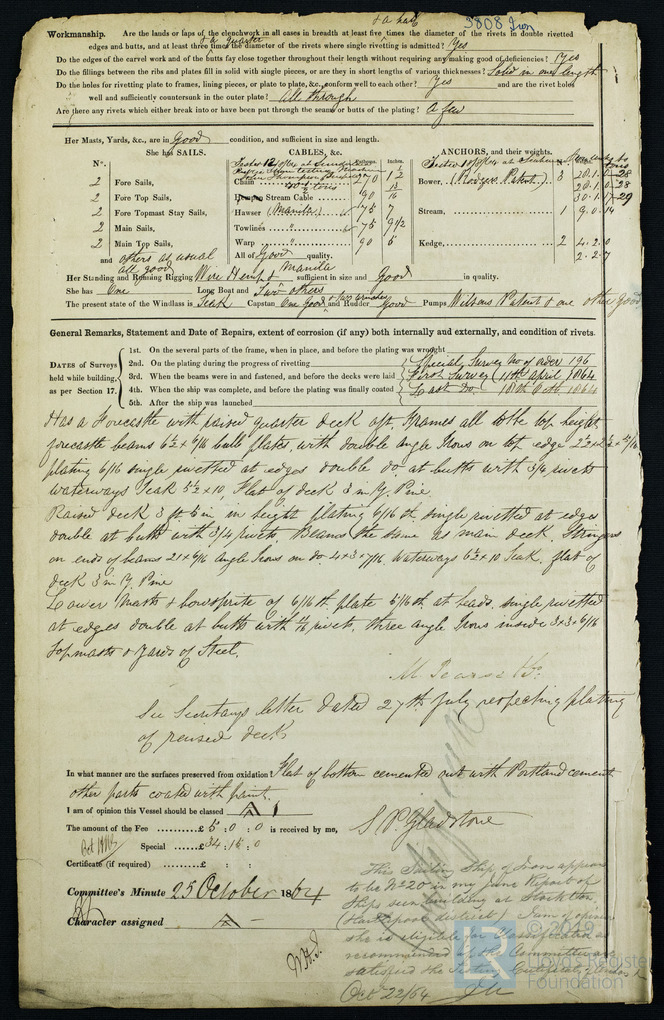 & a half
3808 Iron
Workmanship. Are the lands or laps of the clenchwork in all cases in breadth at least five times the diameter of the rivets in double rivetted
& a quarter
edges and butts, and at least three times the diameter of the rivets where single rivetting is admitted? Yes
Do the edges of the carvel work and of the butts fay close together throughout their length without requiring any making good of deficiencies? Yes
Do the fillings between the ribs and plates fill in solid with single pieces, or are they in short lengths of various thicknesses? Solid in one length
Do the holes for rivetting plate to frames, lining pieces, or plate to plate, &c., conform well to each other? Yes and are the rivet holes
well and sufficiently countersunk in the outer plate? All through
Are there any rivets which either break into or have been put through the seams or butts of the plating? A few
Her Masts, Yards, &c., are in Good condition, and sufficient in size and length.
She has SAILS. CABLES, &c. ANCHORS, and their weights.
Nº.
2 Fore Sails,
2 Fore Top Sails,
2 Fore Topmast Stay Sails,
2 Main Sails,
2 Main Top Sails,
and others as usual
all good
Chain 270 1 1/2
Hempen Stream Cable 90 16
Hawser (Manilla) 75 7
Towlines " 75 9 1/2
Warp " 90 5
All of Good quality.
Bower, (Rodgers Patent) 3
Stream, 1 9.0.14
Kedge, 2 4.2.0
2.2.7
Her Standing and Running Rigging Wire Hemp & Manilla sufficient in size and Good in quality.
She has One Long Boat and Two others
The present state of the Windlass is Teak Capstan One Good and Rudder Good Pumps Wilsons Patent & one other Good
General Remarks, Statement and Date of Repairs, extent of corrosion (if any) both internally and externally, and condition of rivets.
DATES of Surveys held while building, as per Section 17.
1st. On the several parts of the frame, when in place, and before the plating was wrought
2nd. On the plating during the progress of rivetting Special Survey No of order 196
3rd. When the beams were in and fastened, and before the decks were laid First Survey 11th April 1864
4th. When the ship was complete, and before the plating was finally coated Last Do. 18th Oct 1864
5th. After the ship was launched
Has a Forecastle with raised quarter deck aft. Frames all to the top height,
forecastle beams 6½ x 6/16 bulb plates, with double angle Irons on top edge
plating 6/16 single rivetted at edges double do. at butts with 3/4 rivets
waterways Teak 5½ x 10, Flat of deck 3 in Y. Pine.
Raised deck 3 ft 6 in in height plating 6/16th, single rivetted at edges
double at butts with 3/4 rivets, Beams the same as main deck. Stringers
on ends of beams 21 x 6/16 Angle Irons on do. 4 x 3 x 7/16. Waterways 6½ x 10 Teak. flat of
deck 3 in Y. Pine
Lower Masts & bowsprite of 6/16th plate 5/16th at heads. single rivetted
at edges double at butts with rivets, three angle Irons inside 3 x 3 x 6/16
Topmasts & Yards of Steel.
M Pearse & Co
See Secretarys letter dated 27th July respecting plating
of raised deck
In what manner are the surfaces preserved from oxidation? Flat of bottom cemented out with Portland cement
other parts coated with paint.
I am of opinion this Vessel should be classed A 1
The amount of the Fee ..........£ 5 : 0 : 0 is received by me, S P Gladstone
Special ....£ 34 : 15 : 0
Certificate (if required) ........£ : :
Committee's Minute 25 October 1864
Character assigned A
This Sailing Ship of Iron appears
to be No 20 in my June Report of
Ships seen building at Stockton
(Hartlepool district) I am of opinion
she is eligible for Classification as
recommended if the Committee are
satisfied
Oct 22/64
© 2019
LR
Lloyd's Register
Foundation